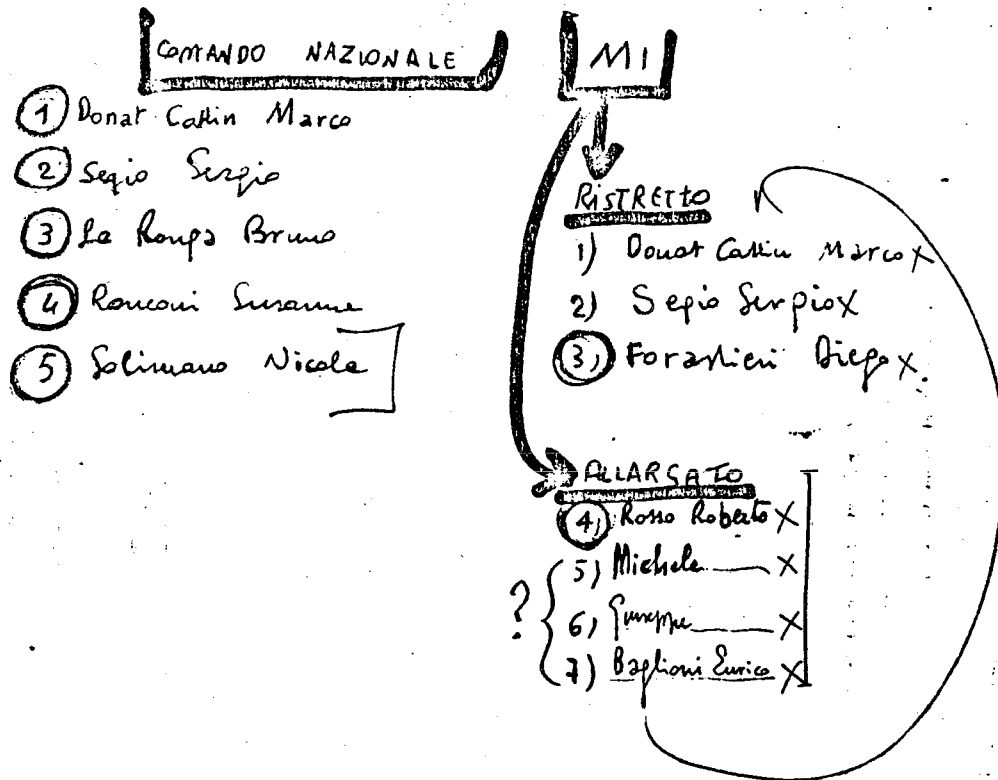 COMANDO NAZIONALE
1 Donat Cattin Marco
2 Segio Sergio
3 La Ronga Bruno
4 Ronconi Susanna
5 Solimano Nicola
MI
RISTRETTO
1) Donat Cattin Marco X
2) Segio Sergio X
3) Forastieri Diego X
ALLARGATO
4) Rosso Roberto X
? 5) Michele X
6) Giuseppe X
7) Baglioni Enrico X